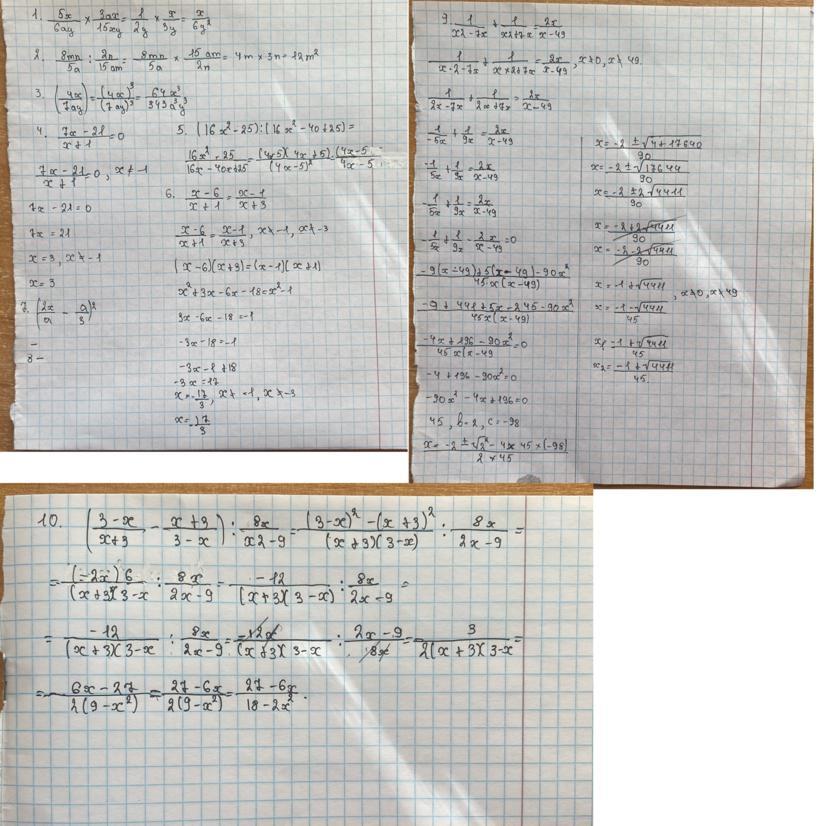 1. 5x/6ay × 3ax/15xy = 1/2y × x/3y = x/6y²
2. 8mn/5a : 2n/15am = 8mn/5a × 15am/2n = 4m × 3n = 12m²
3. (4x/7ay)³ = (4x)³/(7ay)³ = 64x³/343a³y³
4. 7x-21/x+1 = 0
7x-21/x+1 = 0, x≠-1
7x-21=0
7x=21
x=3, x≠-1
x=3
7. (2x/a - a/3)²
-
8-
5. (16x²-25):(16x²-40+25)=
16x²-25/16x-40x+25 = (4x-5)(4x+5)/(4x-5)² = (4x-5/4x-5
6. x-6/x+1 = x-1/x+3
x-6/x+1 = x-1/x+3, x≠-1, x≠-3
(x-6)(x+3)=(x-1)(x+1)
x²+3x-6x-18=x²-1
3x-6x-18=-1
-3x-18=-1
-3x-1+18
-3x=17
x=-17/3, x≠-1, x≠-3
x=-17/3
9. 1/x2-7x + 1/x2+7x = 2x/x-49
1/x·2-7x + 1/x×2+7x = 2x/x-49, x≠0, x≠49
1/2x-7x + 1/2x+7x = 2x/x-49
1/-5x + 1/9x = 2x/x-49
-1/5x + 1/9x = 2x/x-49
-1/5x + 1/9x = 2x/x-49
-1/5x + 1/9x - 2x/x-49 = 0
-9(x-49)+5(x-49)-90x²/45x(x-49)
-9+441+5x-245-90x²/45x(x-49)
-4x+196-90x²/45x(x-49 = 0
-4+196-90x²=0
-90x²-4x+196=0
45, b=2, c=-98
x=-2±√2²-4×45×(-98)/2×45
x=-2±√4+17640/90
x=-2±√17644/90
x=-2±2√4411/90
x=-2+2√4411/90
x=-2-2√4411/90
x=-1+√4411/45, x≠0, x≠49
x=-1-√4411/45
x₁=-1+√4411/45
x₂=-1+√4411/45
10. (3-x/x+3 - x+3/3-x) : 8x/x2-9 = (3-x)²-(x+3)²/(x+3)(3-x) : 8x/2x-9 =
= (-2x)6/(x+3)(3-x : 8x/2x-9 = -12/(x+3)(3-x) : 8x/2x-9 =
= -12/(x+3)(3-x : 8x/2x-9 = -12x/(x+3)(3-x : 2x-9/8x = 3/2(x+3)(3-x =
= -6x-27/2(9-x²) = 27-6x/2(9-x²) = 27-6x/18-2x² .